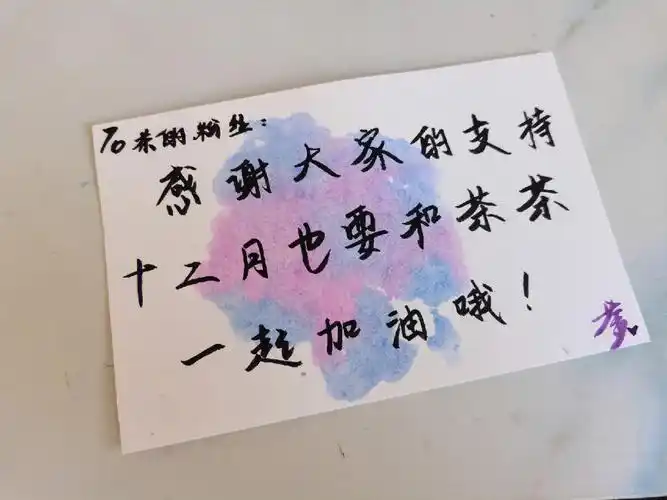 To 茶的粉丝:
感谢大家的支持
十二月也要和茶茶
一起加油哦!